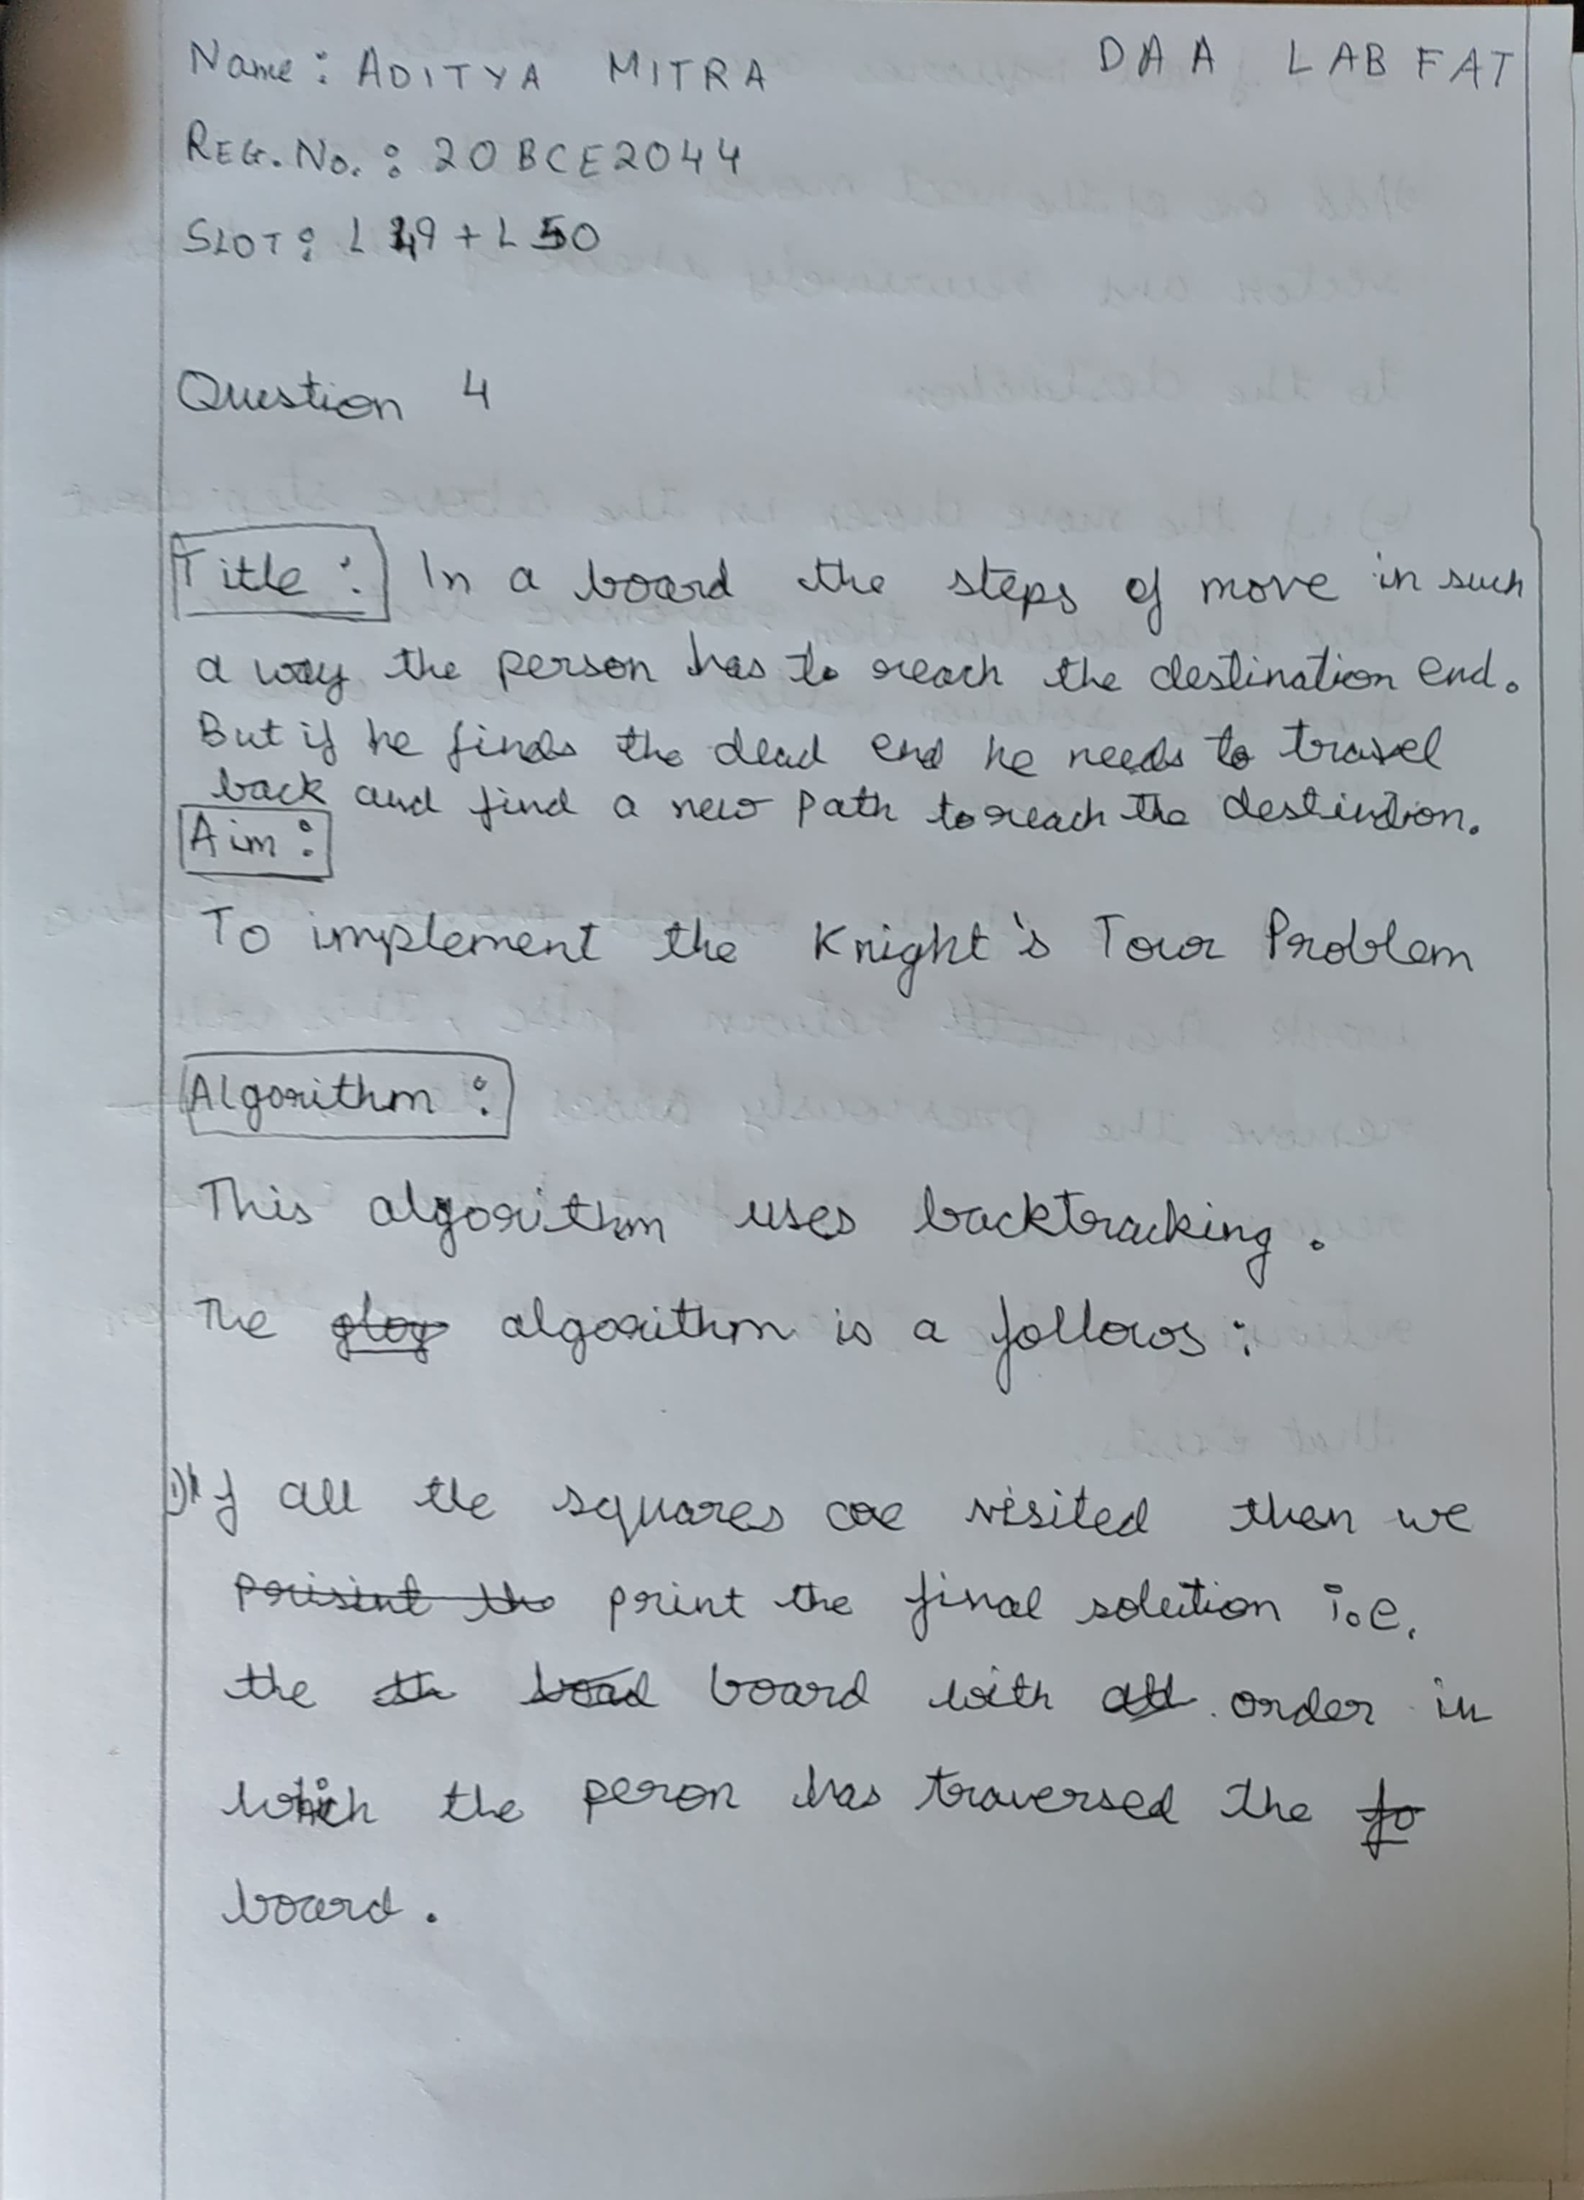 Name: ADITYA MITRA DAA LAB FAT
REG. No. : 20BCE2044
SLOT: L49 + L50
Question 4
Title: In a board the steps of move in such
a way the person has to reach the destination end.
But if he finds the dead end he needs to travel
back and find a new path to reach the destination.
Aim:
To implement the Knight's Tour Problem
Algorithm:
This algorithm uses backtracking.
The algorithm is a follows:
1) If all the squares are visited then we
print the final solution i.e.
the board with order in
which the peron has traversed the
board.